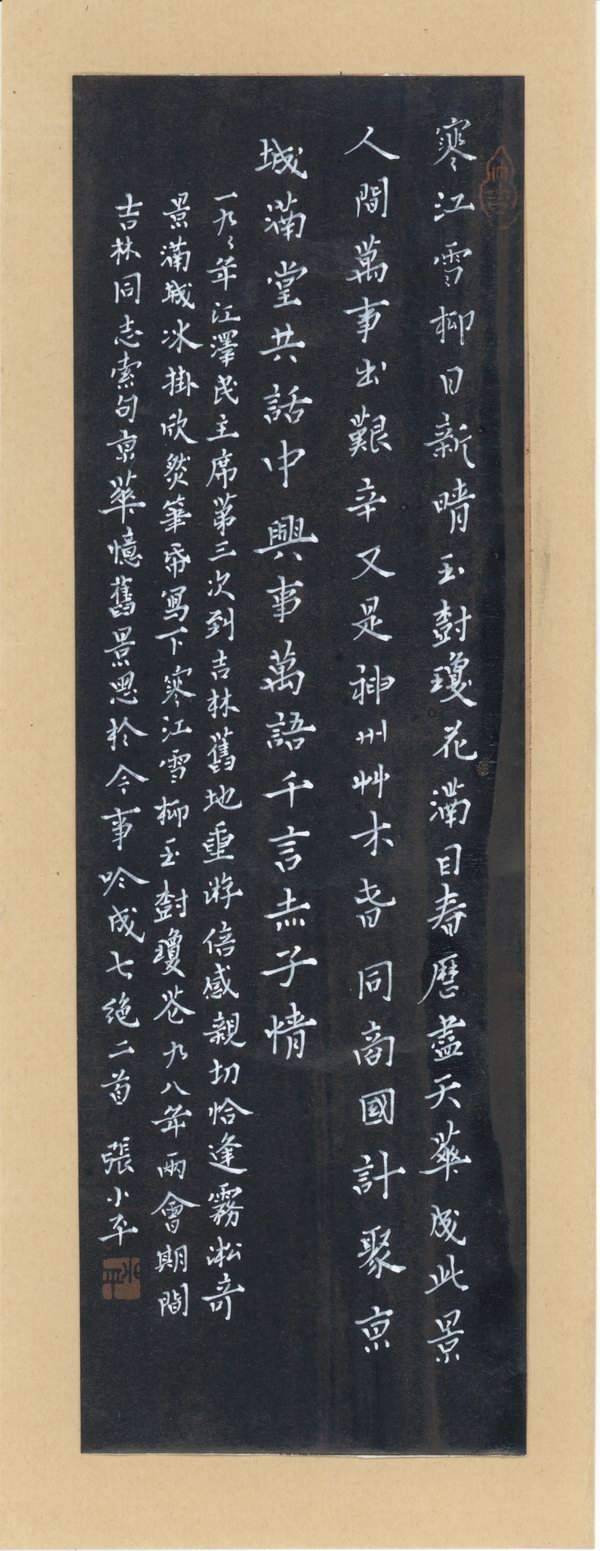 寒江雪柳日新晴玉樹瓊花滿目春歷盡天華成此景
人間萬事出艱辛又是神州艸木旾同商國計聚京
城滿堂共話中興事萬語千言赤子情
一九〻年江澤民主席第三次到吉林舊地重游倍感親切恰逢霧凇奇
景滿城冰掛欣然筆帋寫下寒江雪柳玉樹瓊花九八年兩會期間
吉林同志索句京華憶舊景思於今事吟成七絕二首 張小平